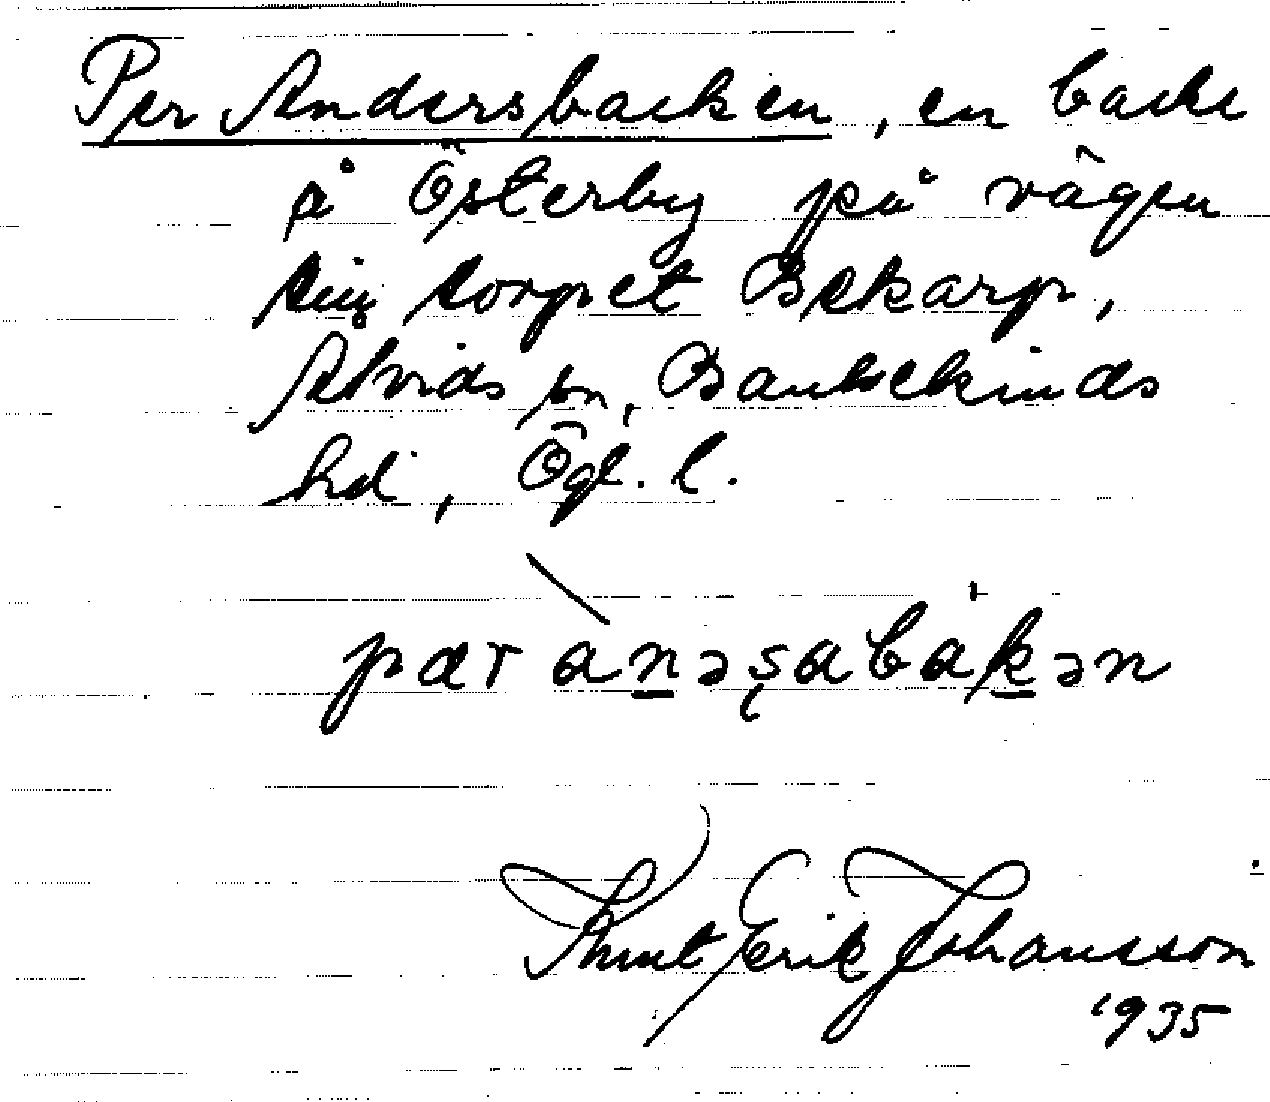 Per Andersbacken, en backe
å Österby på vägen
till torpet Bekarp,
Atvids sn, Bankekinds
hd, Ögl. l.
pær anəșabakən
Knut Erik Johansson
1935